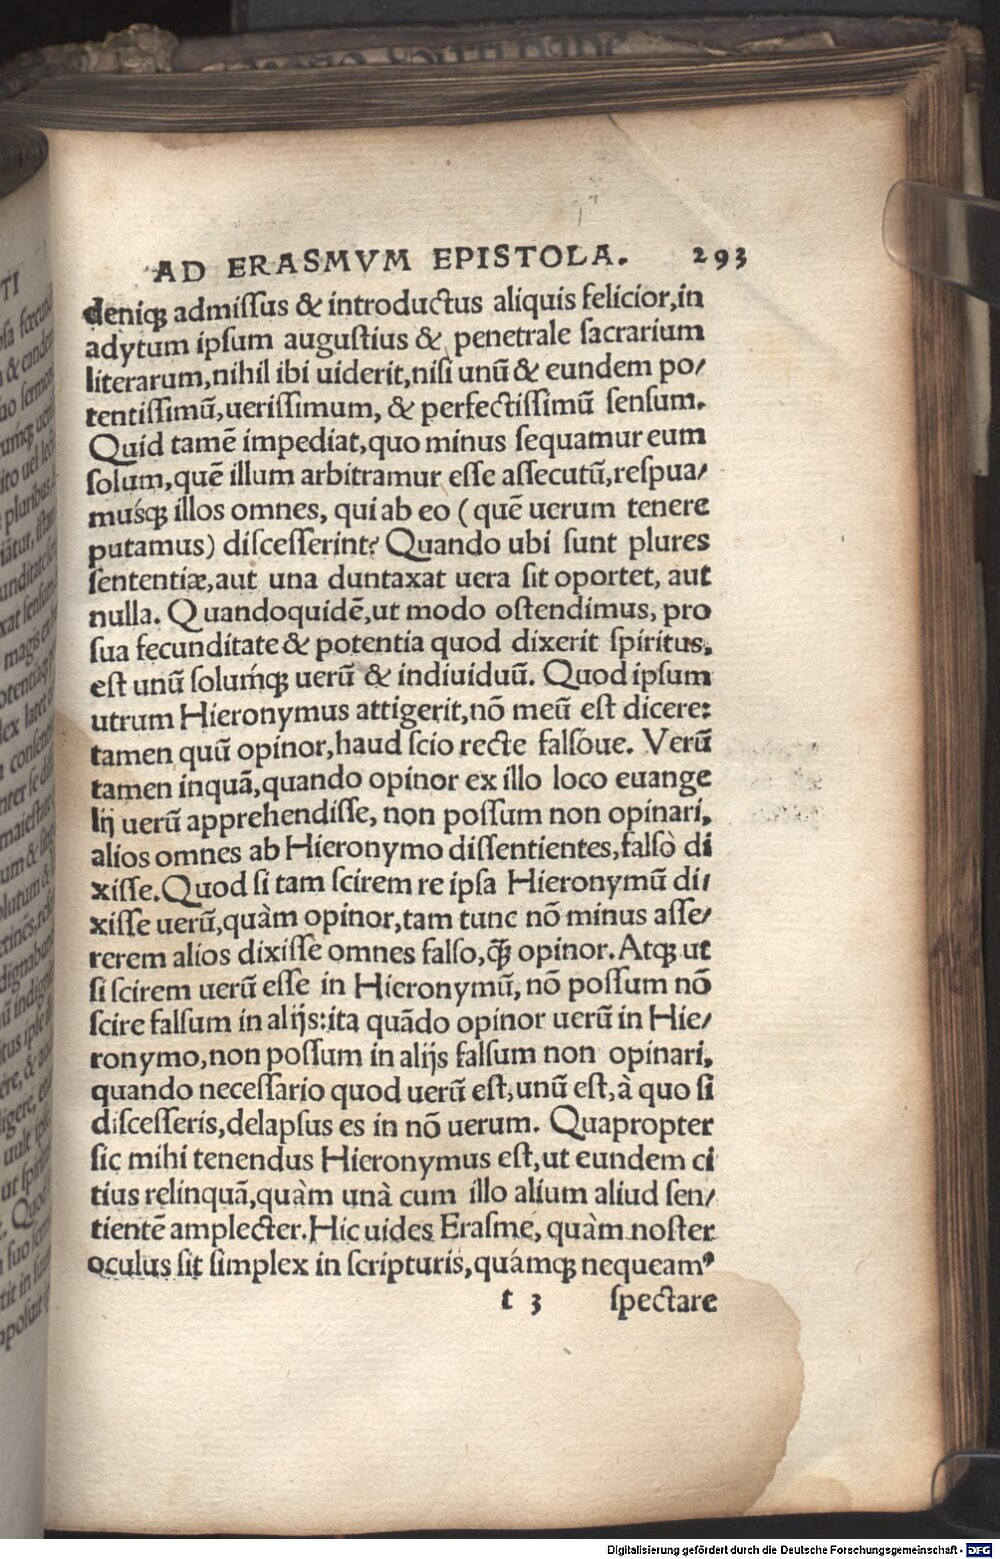 AD ERASMVM EPISTOLA. 293
deniqꝫ admiſſus & introductus aliquis felicior,in
adytum ipſum auguſtius & penetrale ſacrarium
literarum,nihil ibi uiderit,niſi unū & eundem po/
tentiſſimū,ueriſſimum, & perfectiſſimū ſenſum.
Quid tamē impediat,quo minus ſequamur eum
ſolum,quē illum arbitramur eſſe aſſecutū,reſpua/
muśqꝫ illos omnes, qui ab eo (quē uerum tenere
putamus) diſceſſerint? Quando ubi ſunt plures
ſententiæ,aut una duntaxat uera ſit oportet, aut
nulla. Quandoquidē,ut modo oſtendimus, pro
ſua fecunditate & potentia quod dixerit ſpiritus,
eſt unū ſolumq́ꝫ uerū & indiuiduū. Quod ipſum
utrum Hieronymus attigerit,nō meū eſt dicere:
tamen quū opinor,haud ſcio recte falſóue. Verū
tamen inquā,quando opinor ex illo loco euange
lij uerū apprehendiſſe, non poſſum non opinari,
alios omnes ab Hieronymo diſſentientes,falſò di
xiſſe.Quod ſi tam ſcirem re ipſa Hieronymū di/
xiſſe uerū,quàm opinor,tam tunc nō minus aſſe/
rerem alios dixiſſe omnes falſo,ꝙ̃ opinor.Atqꝫ ut
ſi ſcirem uerū eſſe in Hieronymū, nō poſſum nō
ſcire falſum in alijs:ita quādo opinor uerū in Hie/
ronymo,non poſſum in alijs falſum non opinari,
quando neceſſario quod uerū eſt,unū eſt,à quo ſi
diſceſſeris,delapſus es in nō uerum. Quapropter
ſic mihi tenendus Hieronymus eſt,ut eundem ci
tius relinquā,quàm unà cum illo alium aliud ſen/
tientē amplecter.Hic uides Eraſme, quàm noſter
oculus ſit ſimplex in ſcripturis,quámqꝫ nequeamꝰ
t 3 ſpectare
Digitalisierung gefördert durch die Deutsche Forschungsgemeinschaft - DFG